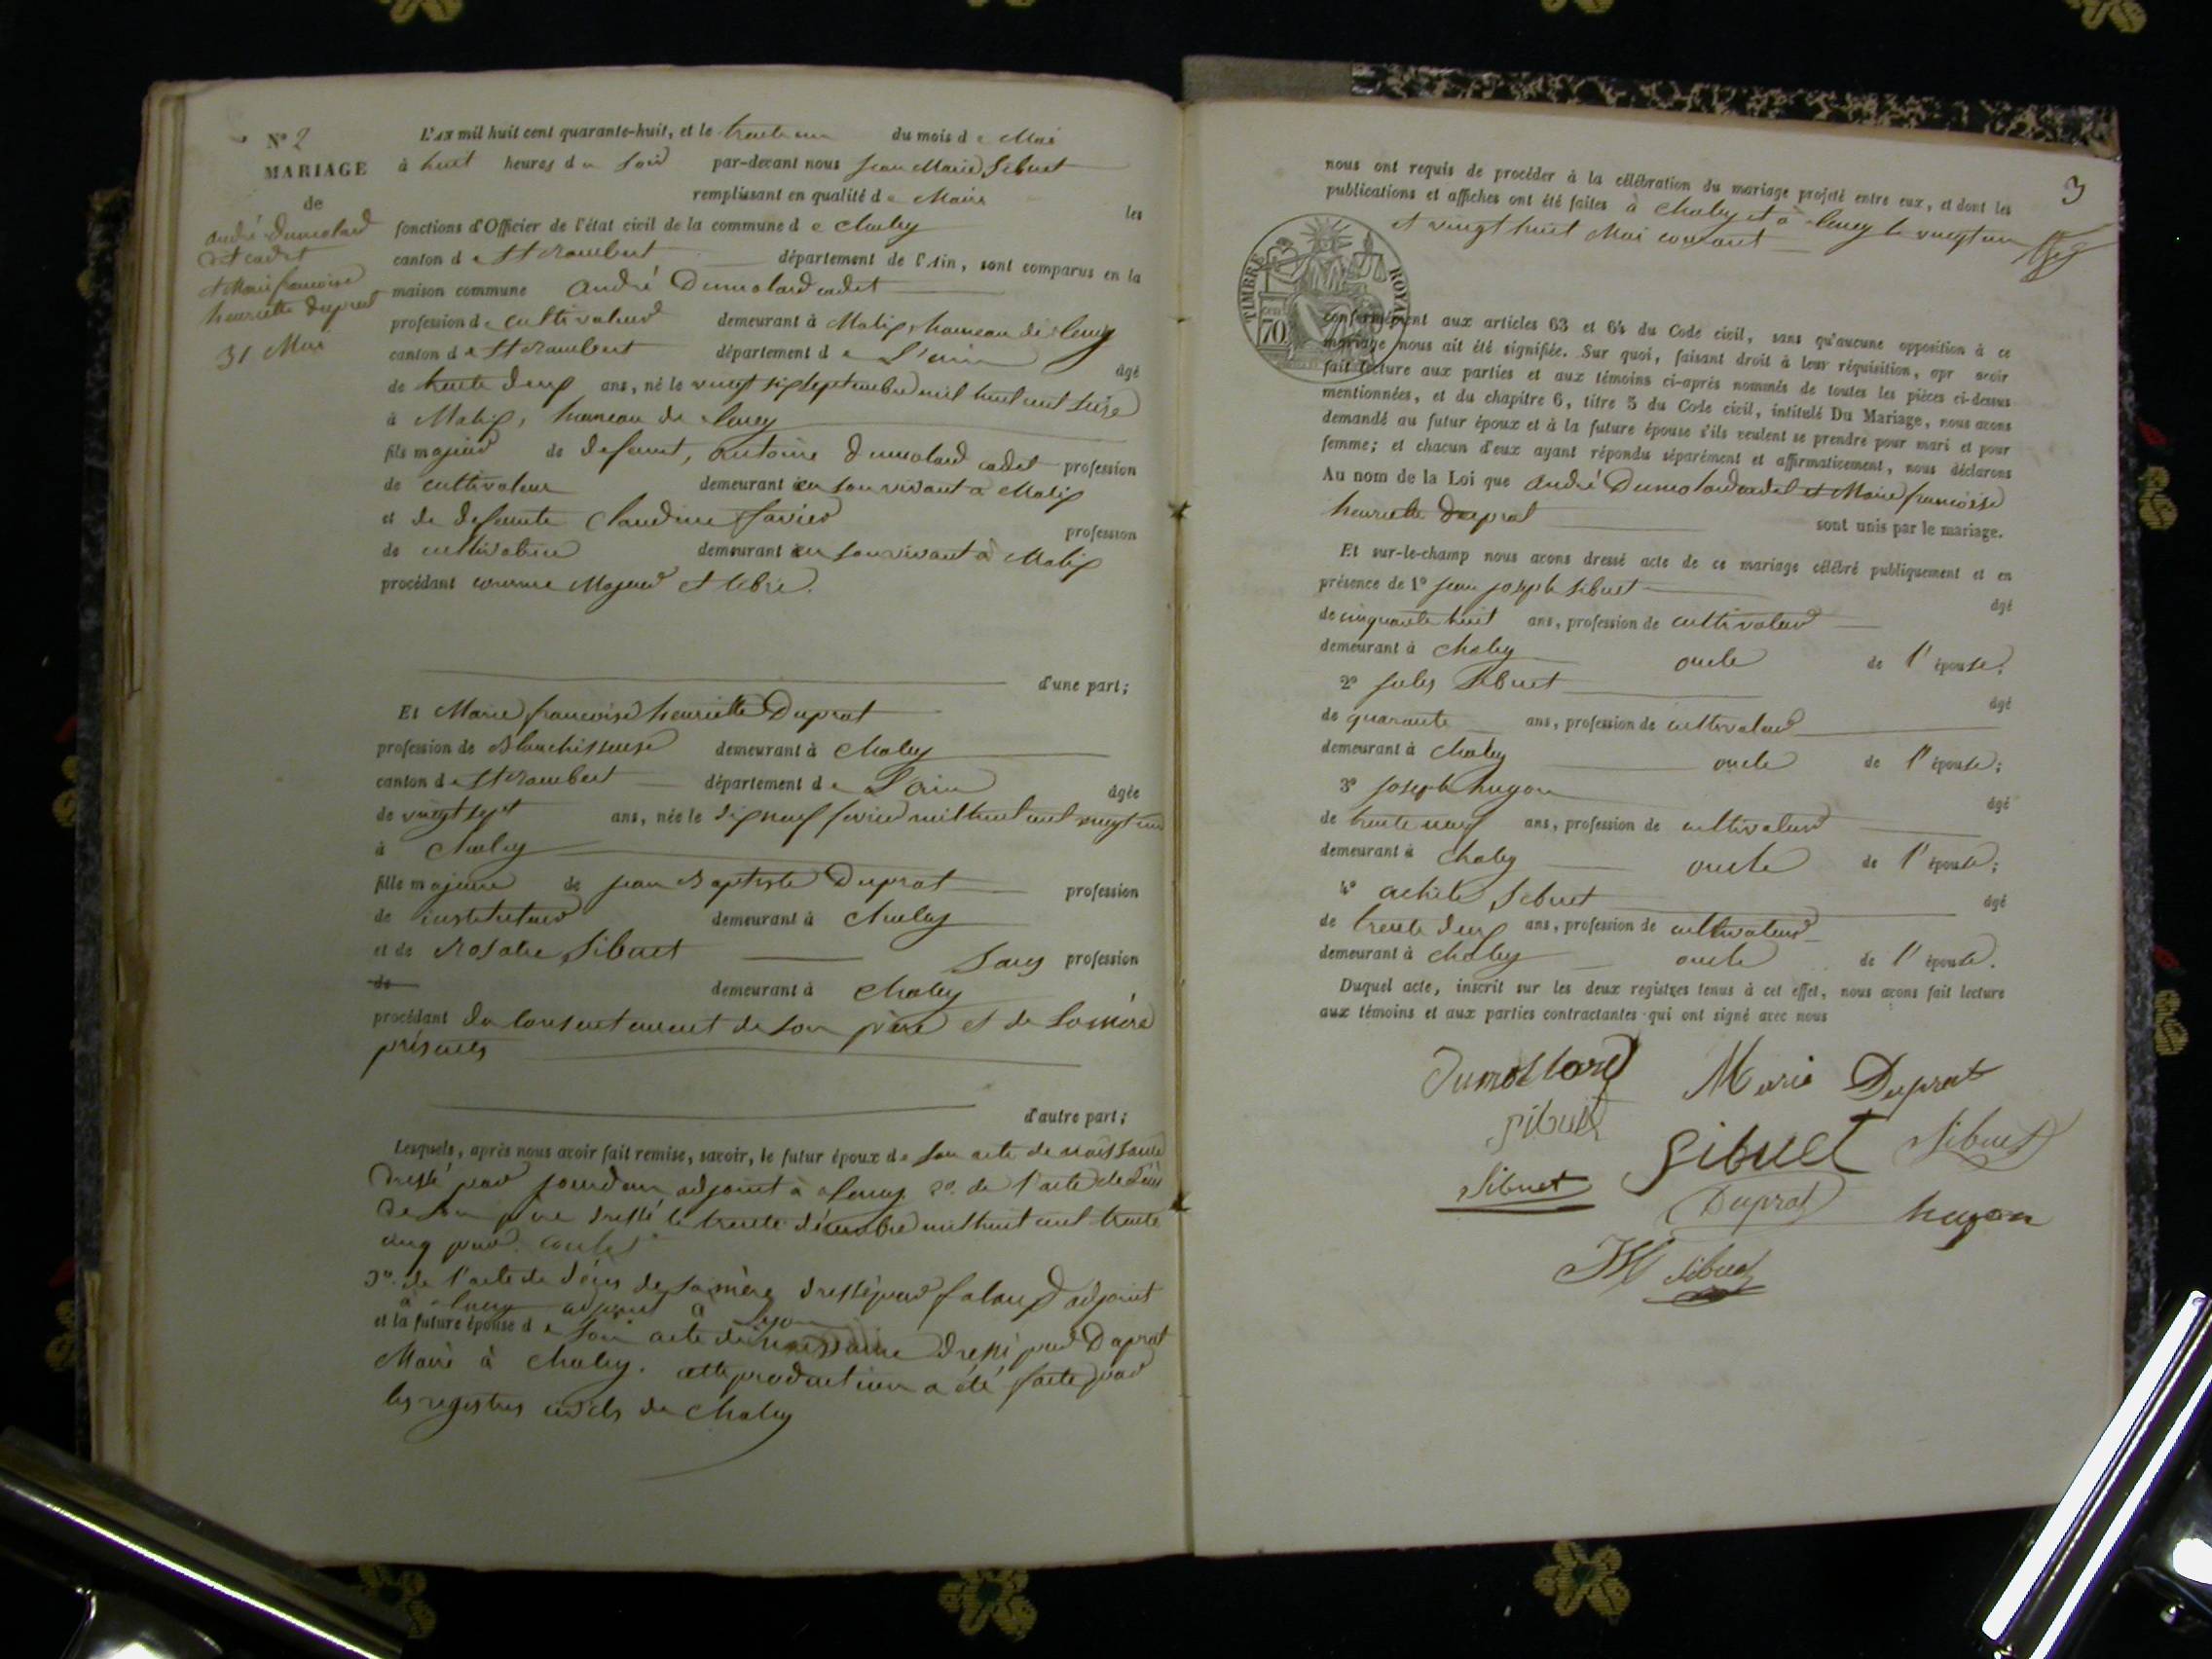 N° 2
MARIAGE
de
andré Dumolard
dit cadet
et Marie françoise
henriette duprat
31 Mai
L'AN mil huit cent quarante-huit, et le trente un du mois de Mai
à huit heures du soir par-devant nous Jean Marie Sibuet
remplissant en qualité de Maire les
fonctions d'Officier de l'état civil de la commune de Chaley
canton de St Rambert département de l'Ain, sont comparus en la
maison commune André Dumolard cadet
profession de cultivateur demeurant à Matix, hameau de
canton de St Rambert département de L'ain âgé
de trente deux ans, né le vingt six septembre mil huit cent seize
à Matix, hameau de
fils majeur de defunt, Antoine Dumolard cadet profession
de cultivateur demeurant en son vivant à Matix
et de defunte Claudine favier profession
de cultivatrice demeurant en son vivant à Matix
procédant comme Majeur et libre.
d'une part;
Et Marie françoise henriette Duprat
profession de Blanchisseuse demeurant à Chaley
canton de St Rambert département de L'ain âgée
de vingt sept ans, née le dix neuf fevrier mil huit cent vingt un
à Chaley
fille majeure de jean Baptiste Duprat profession
de instituteur demeurant à Chaley
et de Rosalie Sibuet Sans profession
de demeurant à Chaley
procédant du consentement de son père et de sa mère
présents
d'autre part;
Lesquels, après nous avoir fait remise, savoir, le futur époux de son acte de naissance
dressé par Jourdan adjoint à 2°. de l'acte de décès
de son père dressé le trente décembre mil huit cent trente
cinq par
3°. de l'acte de décès de sa mère dressé par adjoint
à adjoint à
et la future épouse de son acte de naissance dressé par Duprat
Maire à Chaley. cette production a été faite par
les registres civils de Chaley
3
nous ont requis de procéder à la célébration du mariage projeté entre eux, et dont les
publications et affiches ont été faites à Chaley et à le vingt un
et vingt huit Mai courant
TIMBRE ROYAL
70
conformément aux articles 63 et 64 du Code civil, sans qu'aucune opposition à ce
mariage nous ait été signifiée. Sur quoi, faisant droit à leur réquisition, apr avoir
fait lecture aux parties et aux témoins ci-après nommés de toutes les pièces ci-dessus
mentionnées, et du chapitre 6, titre 5 du Code civil, intitulé Du Mariage, nous avons
demandé au futur époux et à la future épouse s'ils veulent se prendre pour mari et pour
femme; et chacun d'eux ayant répondu séparément et affirmativement, nous déclarons
Au nom de la Loi que André Dumolard cadet et Marie françoise
henriette duprat sont unis par le mariage.
Et sur-le-champ nous avons dressé acte de ce mariage célébré publiquement et en
présence de 1° jean joseph Sibuet âgé
de cinquante huit ans, profession de cultivateur
demeurant à Chaley oncle de l'épouse;
2° jules Sibuet âgé
de quarante ans, profession de cultivateur
demeurant à Chaley oncle de l'épouse;
3° joseph hugon âgé
de trente neuf ans, profession de cultivateur
demeurant à Chaley oncle de l'épouse;
4° achile Sibuet âgé
de trente deux ans, profession de cultivateur
demeurant à Chaley oncle de l'épouse.
Duquel acte, inscrit sur les deux registres tenus à cet effet, nous avons fait lecture
aux témoins et aux parties contractantes qui ont signé avec nous
Dumollard Marie Duprat
Sibuet Sibuet Sibuet
Sibuet Duprat hugon
JM Sibuet